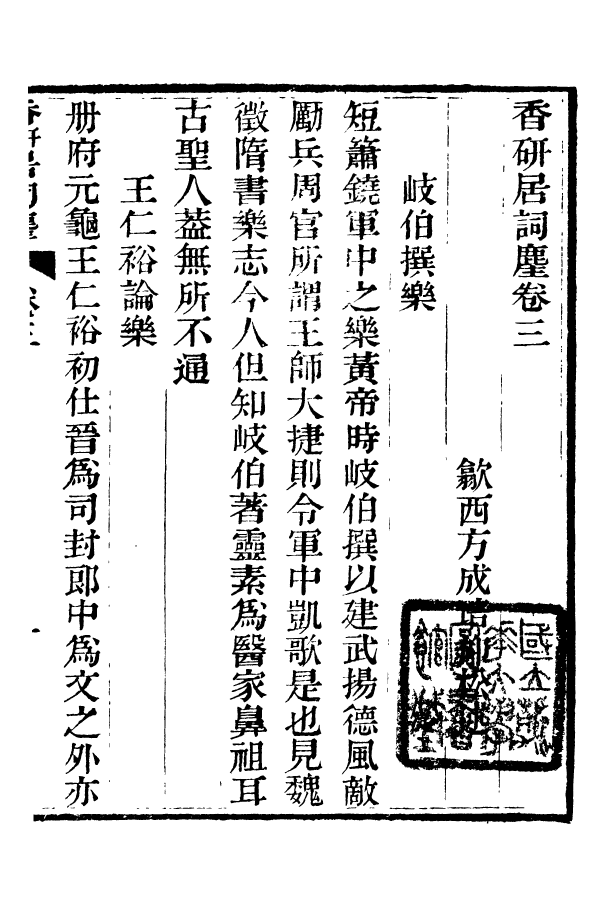 香研居詞麈卷三
歙西方成培
岐伯撰樂
短簫鐃軍中之樂黃帝時岐伯撰以建武揚德風敵
勵兵周官所謂王師大捷則令軍中凱歌是也見魏
徵隋書樂志今人但知岐伯著靈素爲醫家鼻祖耳
古聖人葢無所不通
王仁裕論樂
册府元龜王仁裕初仕晉爲司封郎中爲文之外亦
香研居詞麈
卷三
一